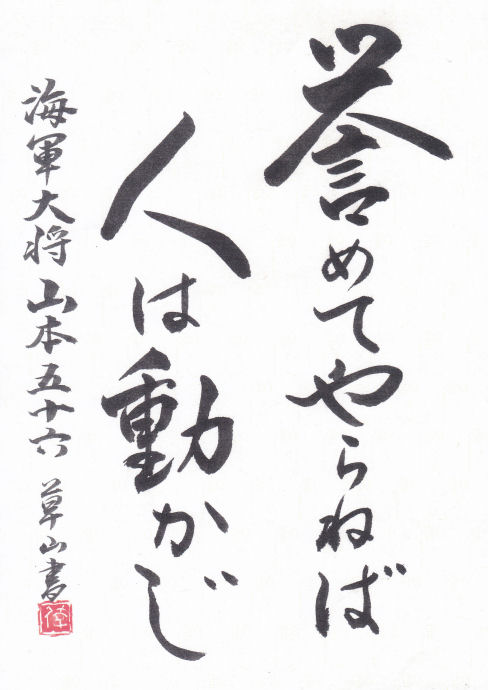 誉めてやらねば
人は動かじ
海軍大将 山本五十六 草山書